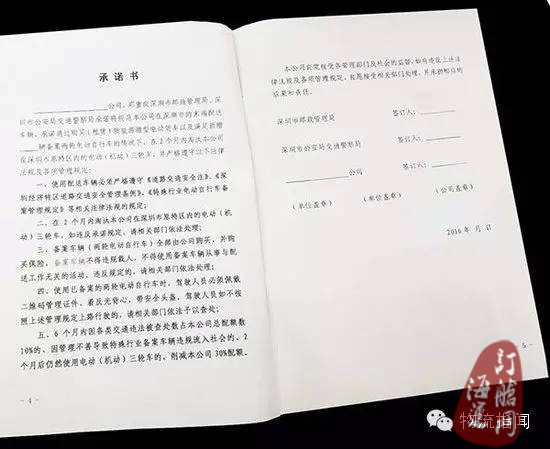 承诺书
____公司,郑重向深圳市邮政管理局、深
圳市公安局交通警察局承诺规范本公司在深圳市的末端配送
车辆,承诺通过购买(租赁)新能源微型电动货车以及满足新增
____辆备案两轮电动自行车的情况下,在2个月内淘汰本公司
在深圳市原特区内的电动(机动)三轮车,并严格遵守以下法律
法规及各项管理规定:
一、使用配送车辆必须严格遵守《道路交通安全法》、《深
圳经济特区道路交通安全管理条例》、《特殊行业电动自行车备
案管理规定》等相关法律法规的规定;
二、在2个月内淘汰本公司在深圳市原特区内的电动(机
动)三轮车,如违反承诺规定,请相关部门依法处理;
三、备案车辆(两轮电动自行车)全部由公司购买,并购
买保险,备案车辆不得违规载人,不得使用备案车辆从事与配
送工作无关的活动,违反规定的,请相关部门依法处理;
四、使用已备案的两轮电动自行车时,驾驶人员必须佩戴
二维码管理证件、着反光背心、带安全头盔,驾驶人员如不按
照上述管理规定上路行驶的,请相关部门依法予以查处;
五、6个月内因各类交通违法被查处数占本公司总配额数
10%的、因管理不善导致特殊行业备案车辆违规流入社会的、2
个月后仍然使用电动(机动)三轮车的,削减本公司30%配额。
- 4 -
本公司自觉接受各管理部门及社会的监督,如有违反上述法
律法规及各项管理规定,自愿接受相关部门处理,并承担相应的
后果和责任。
深圳市邮政管理局 签订人:____
深圳市公安局交通警察局 签订人:____
____公司 签订人:____
(单位盖章) (单位盖章) (公司盖章)
2016年 月 日
- 5 -
订舱网
海运
物流指闻